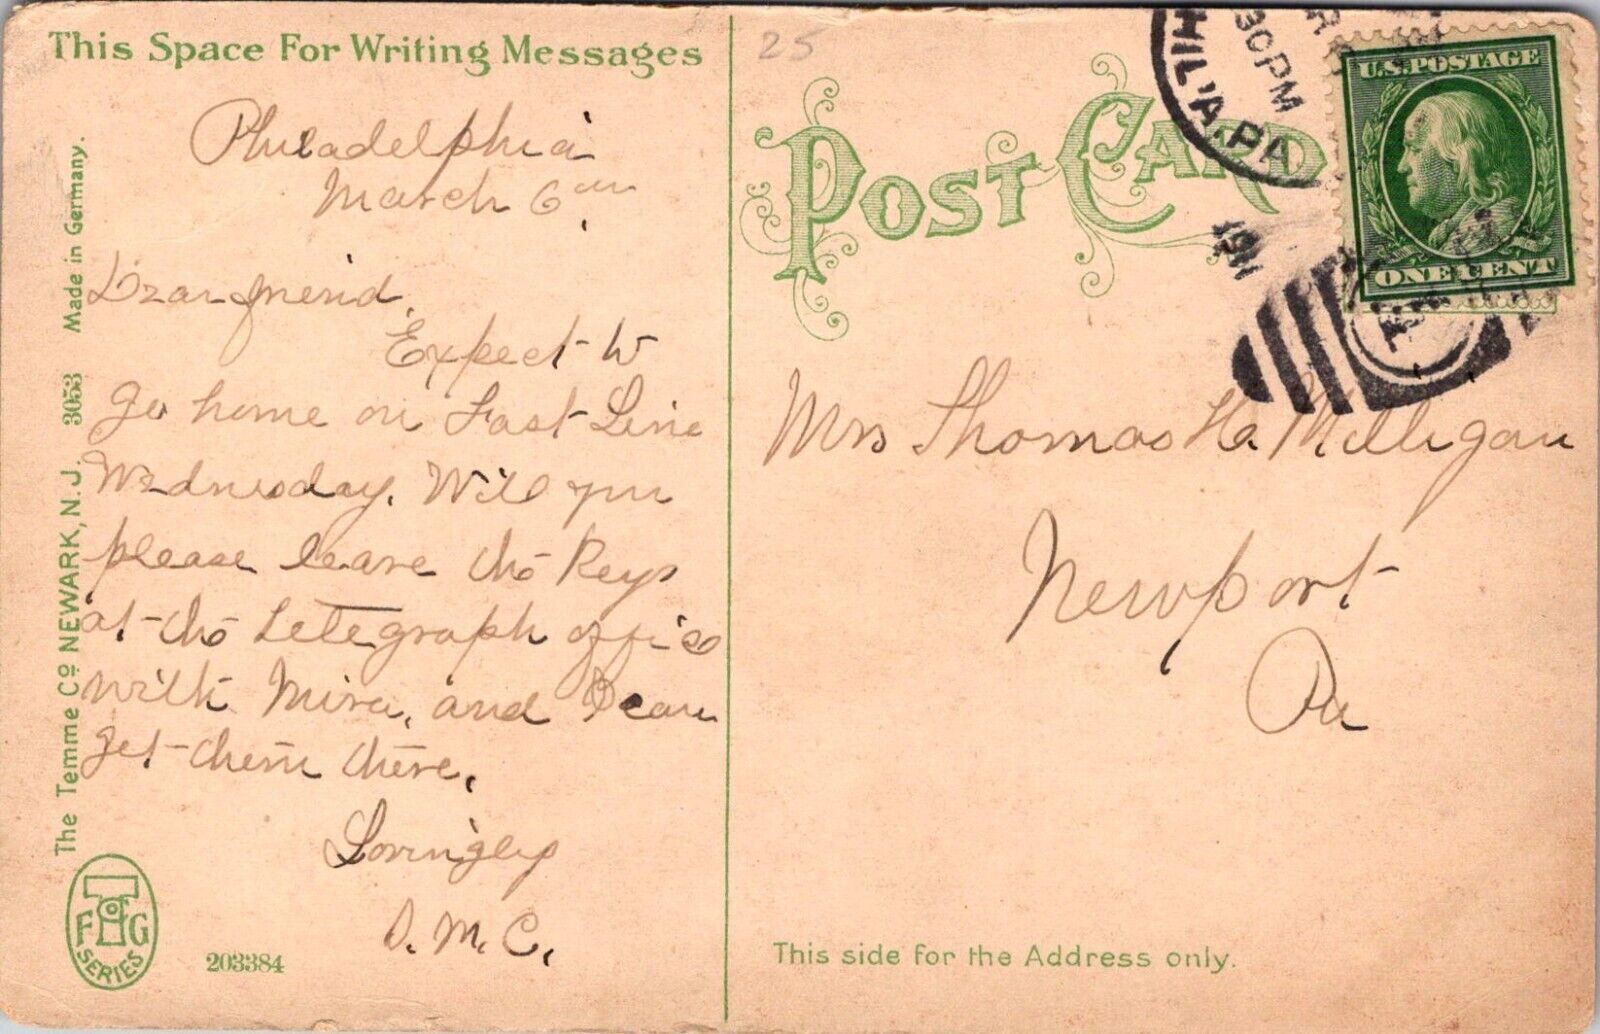 This Space For Writing Messages
Philadelphia
March 6
Dear friend,
Expect to
go home on Fast Line
Wednesday. Will you
please leave the Keys
at the Telegraph office
with Mira, and I can
get them there.
Lovingly
D. M. C.
The Temme Co NEWARK, N. J. 3053 Made in Germany.
F G
SERIES
203384
25
POST CARD
PHIL'A. PA
30 PM
1911
U.S. POSTAGE
ONE CENT
Mrs Thomas H. Milligan
Newport
Pa
This side for the Address only.